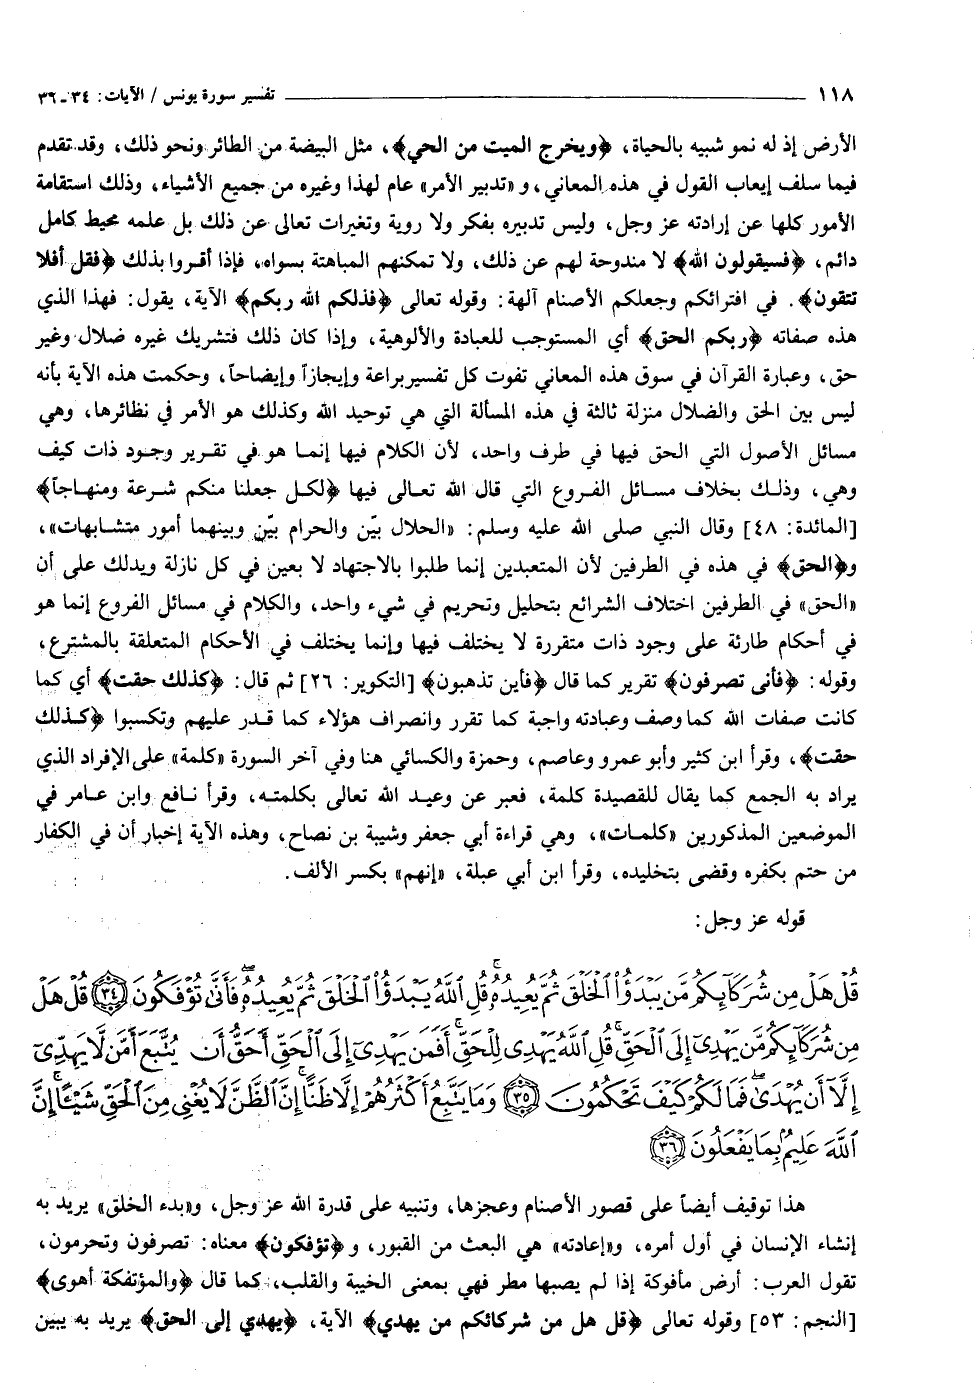 ١١٨ ــــــــــــــــــــــــــــــــ تفسير سورة يونس / الآيات: ٣٤ ـ ٣٦
الأرض إذ له نمو شبيه بالحياة، ﴿ويخرج الميت من الحي﴾، مثل البيضة من الطائر ونحو ذلك، وقد تقدم
فيما سلف إيعاب القول في هذه المعاني، و«تدبير الأمر» عام لهذا وغيره من جميع الأشياء، وذلك استقامة
الأمور كلها عن إرادته عز وجل، وليس تدبيره بفكر ولا روية وتغيرات تعالى عن ذلك بل علمه محيط كامل
دائم، ﴿فسيقولون الله﴾ لا مندوحة لهم عن ذلك، ولا تمكنهم المباهتة بسواه، فإذا أقروا بذلك ﴿فقل أفلا
تتقون﴾. في افترائكم وجعلكم الأصنام آلهة: وقوله تعالى ﴿فذلكم الله ربكم﴾ الآية، يقول: فهذا الذي
هذه صفاته ﴿ربكم الحق﴾ أي المستوجب للعبادة والألوهية، وإذا كان ذلك فتشريك غيره ضلال وغير
حق، وعبارة القرآن في سوق هذه المعاني تفوت كل تفسير براعة وإيجازاً وإيضاحاً، وحكمت هذه الآية بأنه
ليس بين الحق والضلال منزلة ثالثة في هذه المسألة التي هي توحيد الله وكذلك هو الأمر في نظائرها، وهي
مسائل الأصول التي الحق فيها في طرف واحد، لأن الكلام فيها إنما هو في تقرير وجود ذات كيف
وهي، وذلك بخلاف مسائل الفروع التي قال الله تعالى فيها ﴿لكل جعلنا منكم شرعة ومنهاجاً﴾
[المائدة: ٤٨] وقال النبي صلى الله عليه وسلم: «الحلال بيّن والحرام بيّن وبينهما أمور متشابهات»،
و﴿الحق﴾ في هذه في الطرفين لأن المتعبدين إنما طلبوا بالاجتهاد لا بعين في كل نازلة ويدلك على أن
«الحق» في الطرفين اختلاف الشرائع بتحليل وتحريم في شيء واحد، والكلام في مسائل الفروع إنما هو
في أحكام طارئة على وجود ذات متقررة لا يختلف فيها وإنما يختلف في الأحكام المتعلقة بالمشترع،
وقوله: ﴿فأنى تصرفون﴾ تقرير كما قال ﴿فأين تذهبون﴾ [التكوير: ٢٦] ثم قال: ﴿كذلك حقت﴾ أي كما
كانت صفات الله كما وصف وعبادته واجبة كما تقرر وانصراف هؤلاء كما قدر عليهم وتكسبوا ﴿كذلك
حقت﴾، وقرأ ابن كثير وأبو عمرو وعاصم، وحمزة والكسائي هنا وفي آخر السورة «كلمة» على الإفراد الذي
يراد به الجمع كما يقال للقصيدة كلمة، فعبر عن وعيد الله تعالى بكلمته، وقرأ نافع وابن عامر في
الموضعين المذكورين «كلمات»، وهي قراءة أبي جعفر وشيبة بن نصاح، وهذه الآية إخبار أن في الكفار
من حتم بكفره وقضى بتخليده، وقرأ ابن أبي عبلة، «إنهم» بكسر الألف.
قوله عز وجل:
قُلْ هَلْ مِن شُرَكَآئِكُم مَّن يَبْدَؤُا۟ ٱلْخَلْقَ ثُمَّ يُعِيدُهُۥ ۚ قُلِ ٱللَّهُ يَبْدَؤُا۟ ٱلْخَلْقَ ثُمَّ يُعِيدُهُۥ ۖ فَأَنَّىٰ تُؤْفَكُونَ ﴿٣٤﴾ قُلْ هَلْ
مِن شُرَكَآئِكُم مَّن يَهْدِىٓ إِلَى ٱلْحَقِّ ۚ قُلِ ٱللَّهُ يَهْدِى لِلْحَقِّ ۗ أَفَمَن يَهْدِىٓ إِلَى ٱلْحَقِّ أَحَقُّ أَن يُتَّبَعَ أَمَّن لَّا يَهِدِّىٓ
إِلَّآ أَن يُهْدَىٰ ۖ فَمَا لَكُمْ كَيْفَ تَحْكُمُونَ ﴿٣٥﴾ وَمَا يَتَّبِعُ أَكْثَرُهُمْ إِلَّا ظَنًّا ۚ إِنَّ ٱلظَّنَّ لَا يُغْنِى مِنَ ٱلْحَقِّ شَيْـًٔا ۚ إِنَّ
ٱللَّهَ عَلِيمٌۢ بِمَا يَفْعَلُونَ ﴿٣٦﴾
هذا توقيف أيضاً على قصور الأصنام وعجزها، وتنبيه على قدرة الله عز وجل، و«بدء الخلق» يريد به
إنشاء الإنسان في أول أمره، و«إعادته» هي البعث من القبور، و﴿تؤفكون﴾ معناه: تصرفون وتحرمون،
تقول العرب: أرض مأفوكة إذا لم يصبها مطر فهي بمعنى الخيبة والقلب، كما قال ﴿والمؤتفكة أهوى﴾
[النجم: ٥٣] وقوله تعالى ﴿قل هل من شركائكم من يهدي﴾ الآية، ﴿يهدي إلى الحق﴾ يريد به يبين